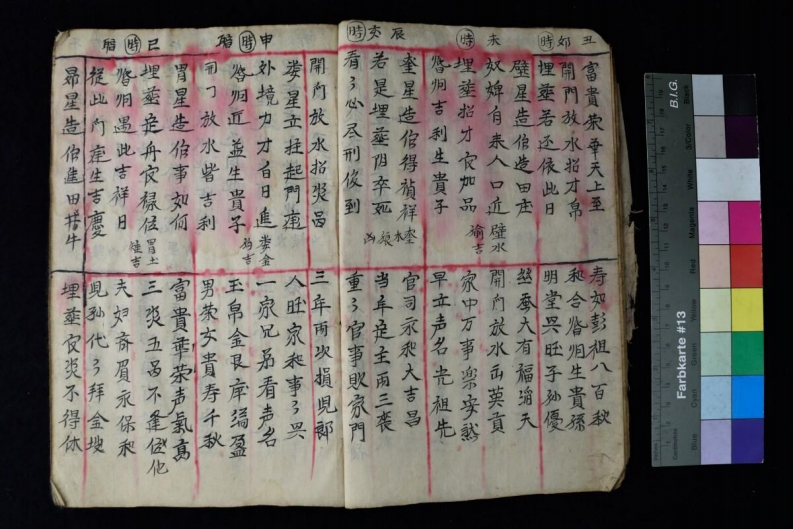 丑 卯時 未時 辰亥時
富貴榮華天上至
壽如彭祖八百秋
開門放水招才帛
和合婚姻生貴孫
埋葬若还依此日
明堂兴旺子孙優
壁星造作造田庄
丝蚕大有福滔天
奴婢自来人口近
壁水㺄吉
開門放水出英贡
埋葬招才官加品
家中万事楽安然
婚姻吉利生貴子
早立声名光祖先
奎星造作得祯祥
奎木狼凶
官司永和大吉昌
若是埋葬阴卒死
当年定主兩三丧
看了必尽刑役到
重了官事敗家門
開門放水招災昌
三年兩次損児郎
申時 巳時
娄星立柱起門庭
人旺家和事了兴
外境力才百日進
娄金狗吉
一家兄弟看声名
婚姻近益生貴子
玉帛金艮庫满盈
開门放水皆吉利
男荣女貴寿千秋
胃星造作事如何
富貴華荣声氣高
埋葬定舟官禄位
胃土雉吉
三災五昌不逢他
婚姻遇此吉祥日
夫妇斉眉永保和
從此门庭生吉慶
児孙代了拜金坡
昴星造作進田牛
埋葬官災不得休
B.I.G.
Farbkarte #13
Centimetres
Blue
Cyan
Green
Yellow
Red
Magenta
White
3/Color
Black